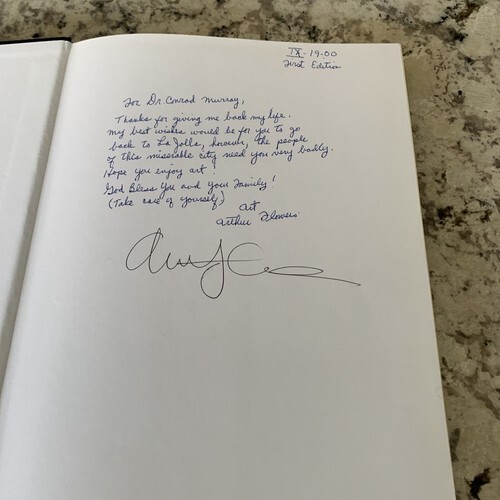 IX-19-00
First Edition
For Dr. Conrad Murray,
Thanks for giving me back my life.
My best wishes would be for you to go
back to La Jolla, however, the people
of this miserable city need you very badly.
Hope you enjoy art!
God Bless You and your Family!
(Take care of yourself)
Art
Arthur Flowers